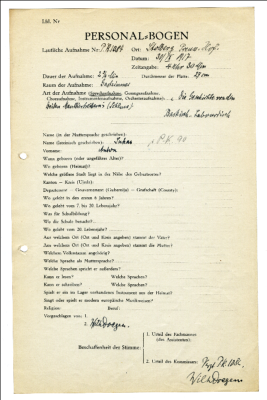 Lfd. Nr
PERSONAL-BOGEN
Lautliche Aufnahme Nr. PK 1084 Ort:
Datum:
Zeitangabe:
Dauer der Aufnahme: Durchmesser der Platte: 27 cm
Raum der Aufnahme:
Art der Aufnahme (Sprechaufnahme, Gesangsaufnahme,
Choraufnahme, Instrumentenaufnahme, Orchesteraufnahme): Die Geschichte von den
Name (in der Muttersprache geschrieben):
Name (lateinisch geschrieben):
Vorname: Anton
Wann geboren (oder ungefähres Alter)?
Wo geboren (Heimat)?
Welche größere Stadt liegt in der Nähe des Geburtsortes?
Kanton — Kreis (Ujezd):
Departement — Gouvernement (Gubernija) — Grafschaft (County):
Wo gelebt in den ersten 6 Jahren?
Wo gelebt vom 7. bis 20. Lebensjahr?
Was für Schulbildung?
Wo die Schule besucht?
Wo gelebt vom 20. Lebensjahr?
Aus welchem Ort (Ort und Kreis angeben) stammt der Vater?
Aus welchem Ort (Ort und Kreis angeben) stammt die Mutter?
Welchem Volksstamm angehörig?
Welche Sprache als Muttersprache?
Welche Sprachen spricht er außerdem?
Kann er lesen? Welche Sprachen?
Kann er schreiben? Welche Sprachen?
Spielt er ein im Lager vorhandenes Instrument aus der Heimat?
Singt oder spielt er modern europäische Musikweisen?
Religion: Beruf:
Vorgeschlagen von: 1.
2. Wilh. Doegen.
Beschaffenheit der Stimme:
1. Urteil des Fachmannes
(des Assistenten):
2. Urteil des Kommissars:
Wilh. Doegen